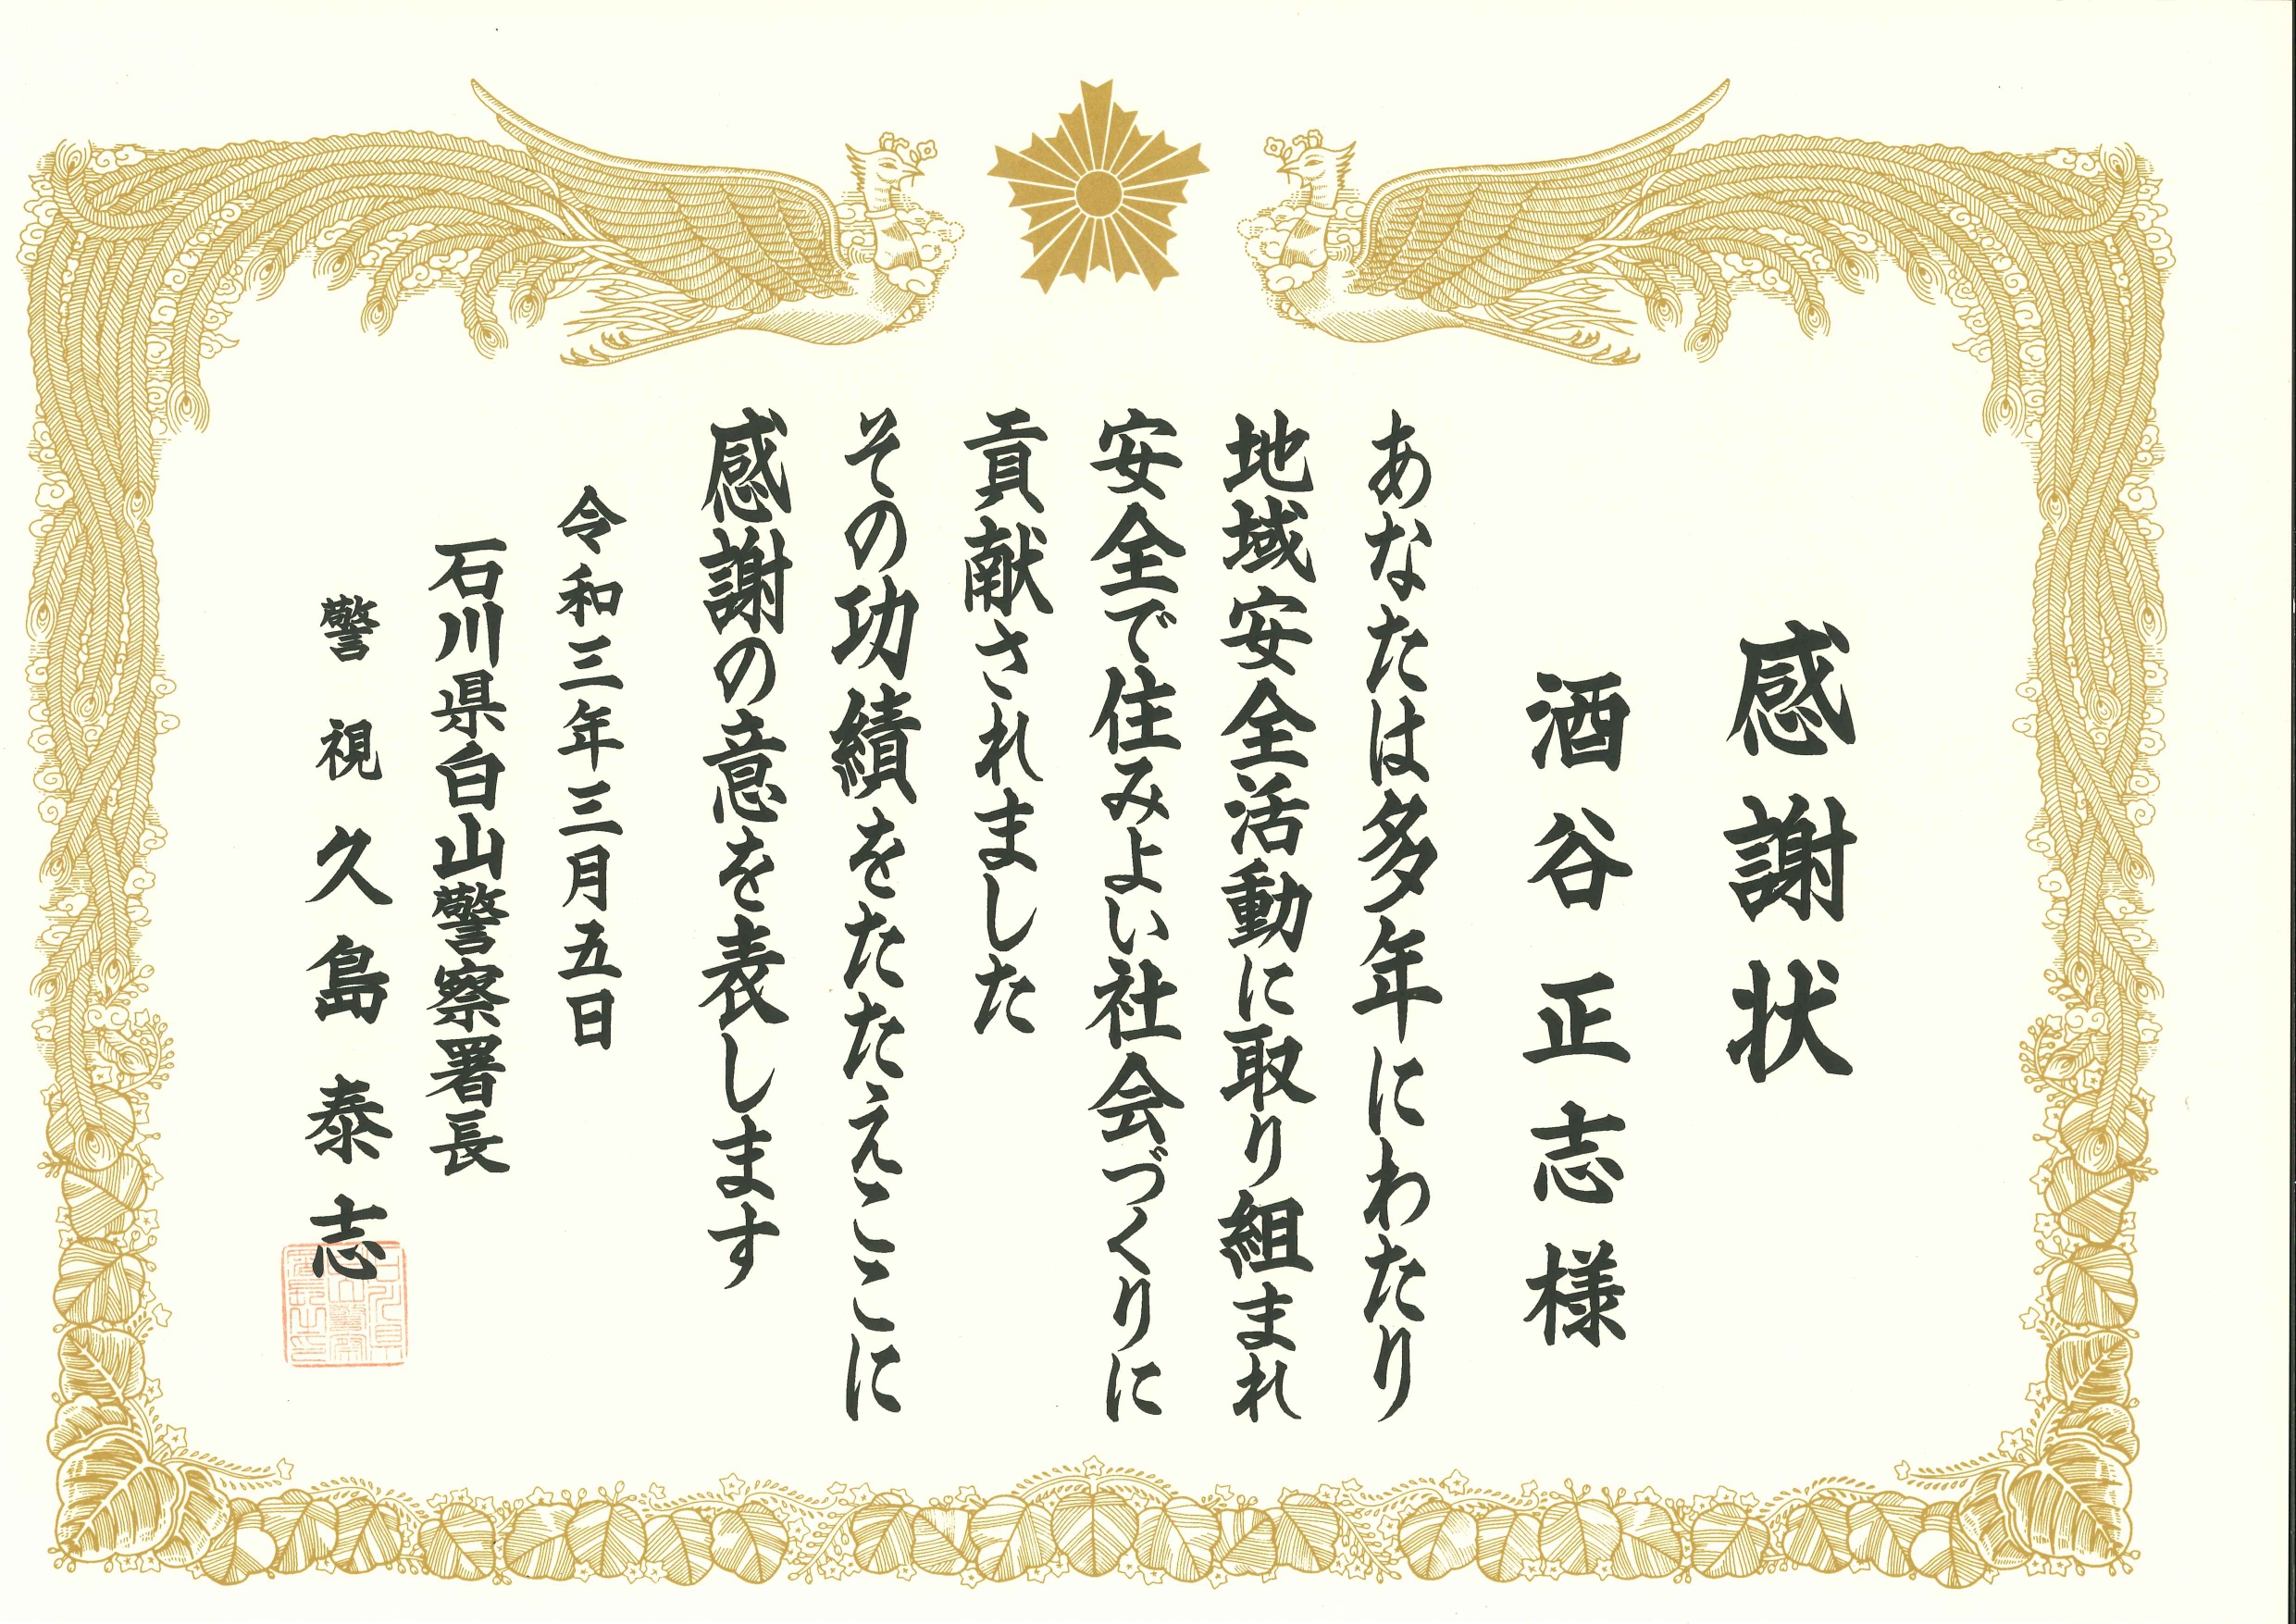 感謝状
酒谷正志様
あなたは多年にわたり
地域安全活動に取り組まれ
安全で住みよい社会づくりに
貢献されました
その功績をたたえここに
感謝の意を表します
令和三年三月五日
石川県白山警察署長
警視久島泰志